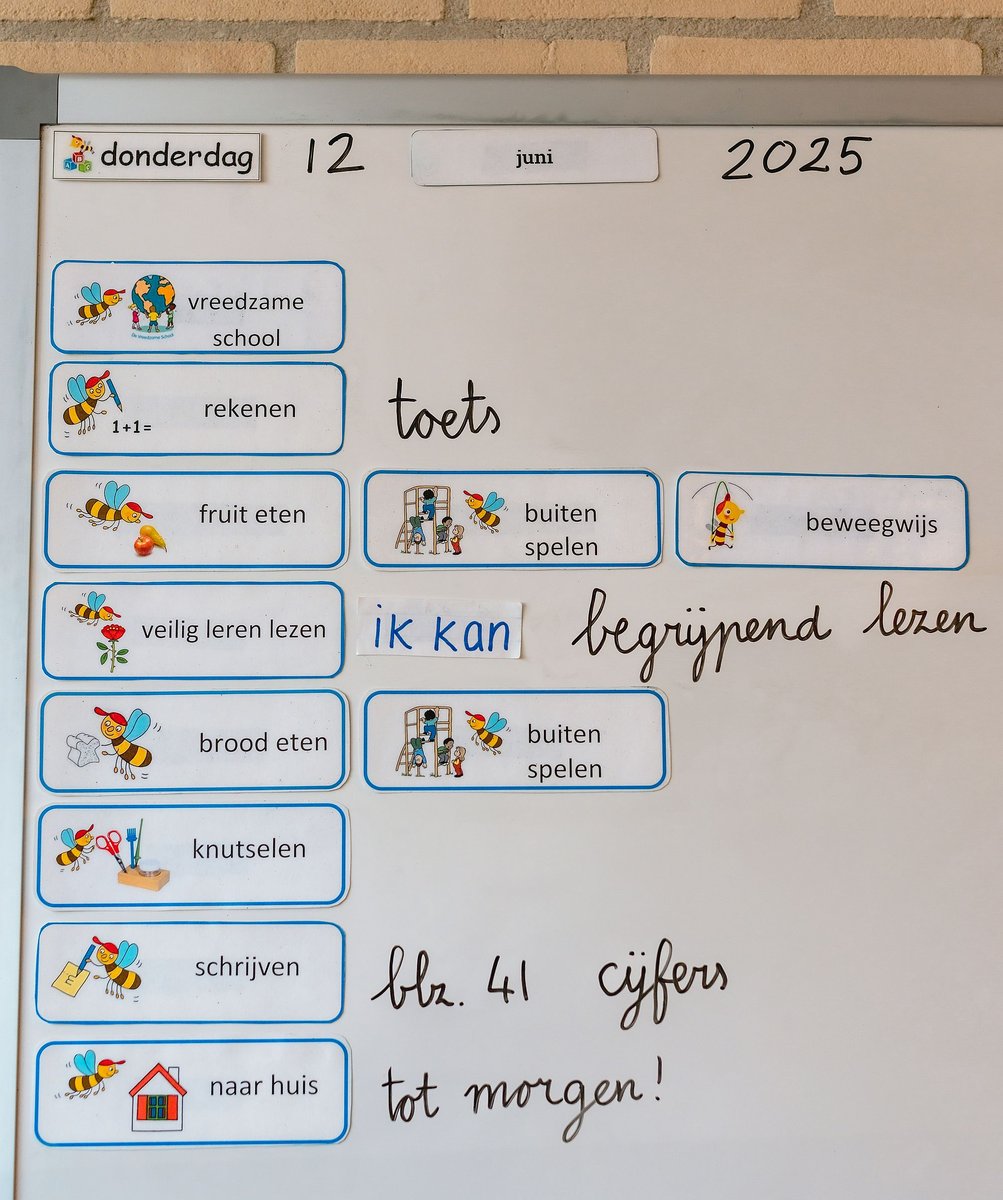 donderdag 12 juni 2025
vreedzame
school
De Vreedzame School
1+1= rekenen toets
fruit eten buiten
spelen beweegwijs
veilig leren lezen ik kan begrijpend lezen
brood eten buiten
spelen
knutselen
E schrijven blz. 41 cijfers
naar huis tot morgen!